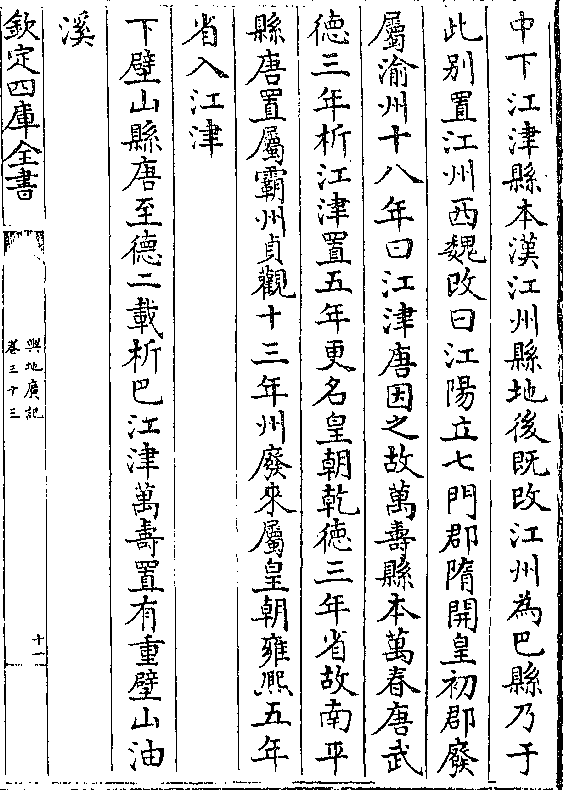 中下江津縣本漢江州縣地後既改江州為巴縣乃于
此别置江州西魏改曰江陽立七門郡隋開皇初郡廢
屬渝州十八年曰江津唐因之故萬壽縣本萬春唐武
徳三年析江津置五年更名皇朝乾徳三年省故南平
縣唐置屬霸州貞觀十三年州廢來屬皇朝雍熙五年
省入江津
下壁山縣唐至德二載析巴江津萬壽置有重壁山油
溪
欽定四庫全書
輿地廣記
卷三十三
十一